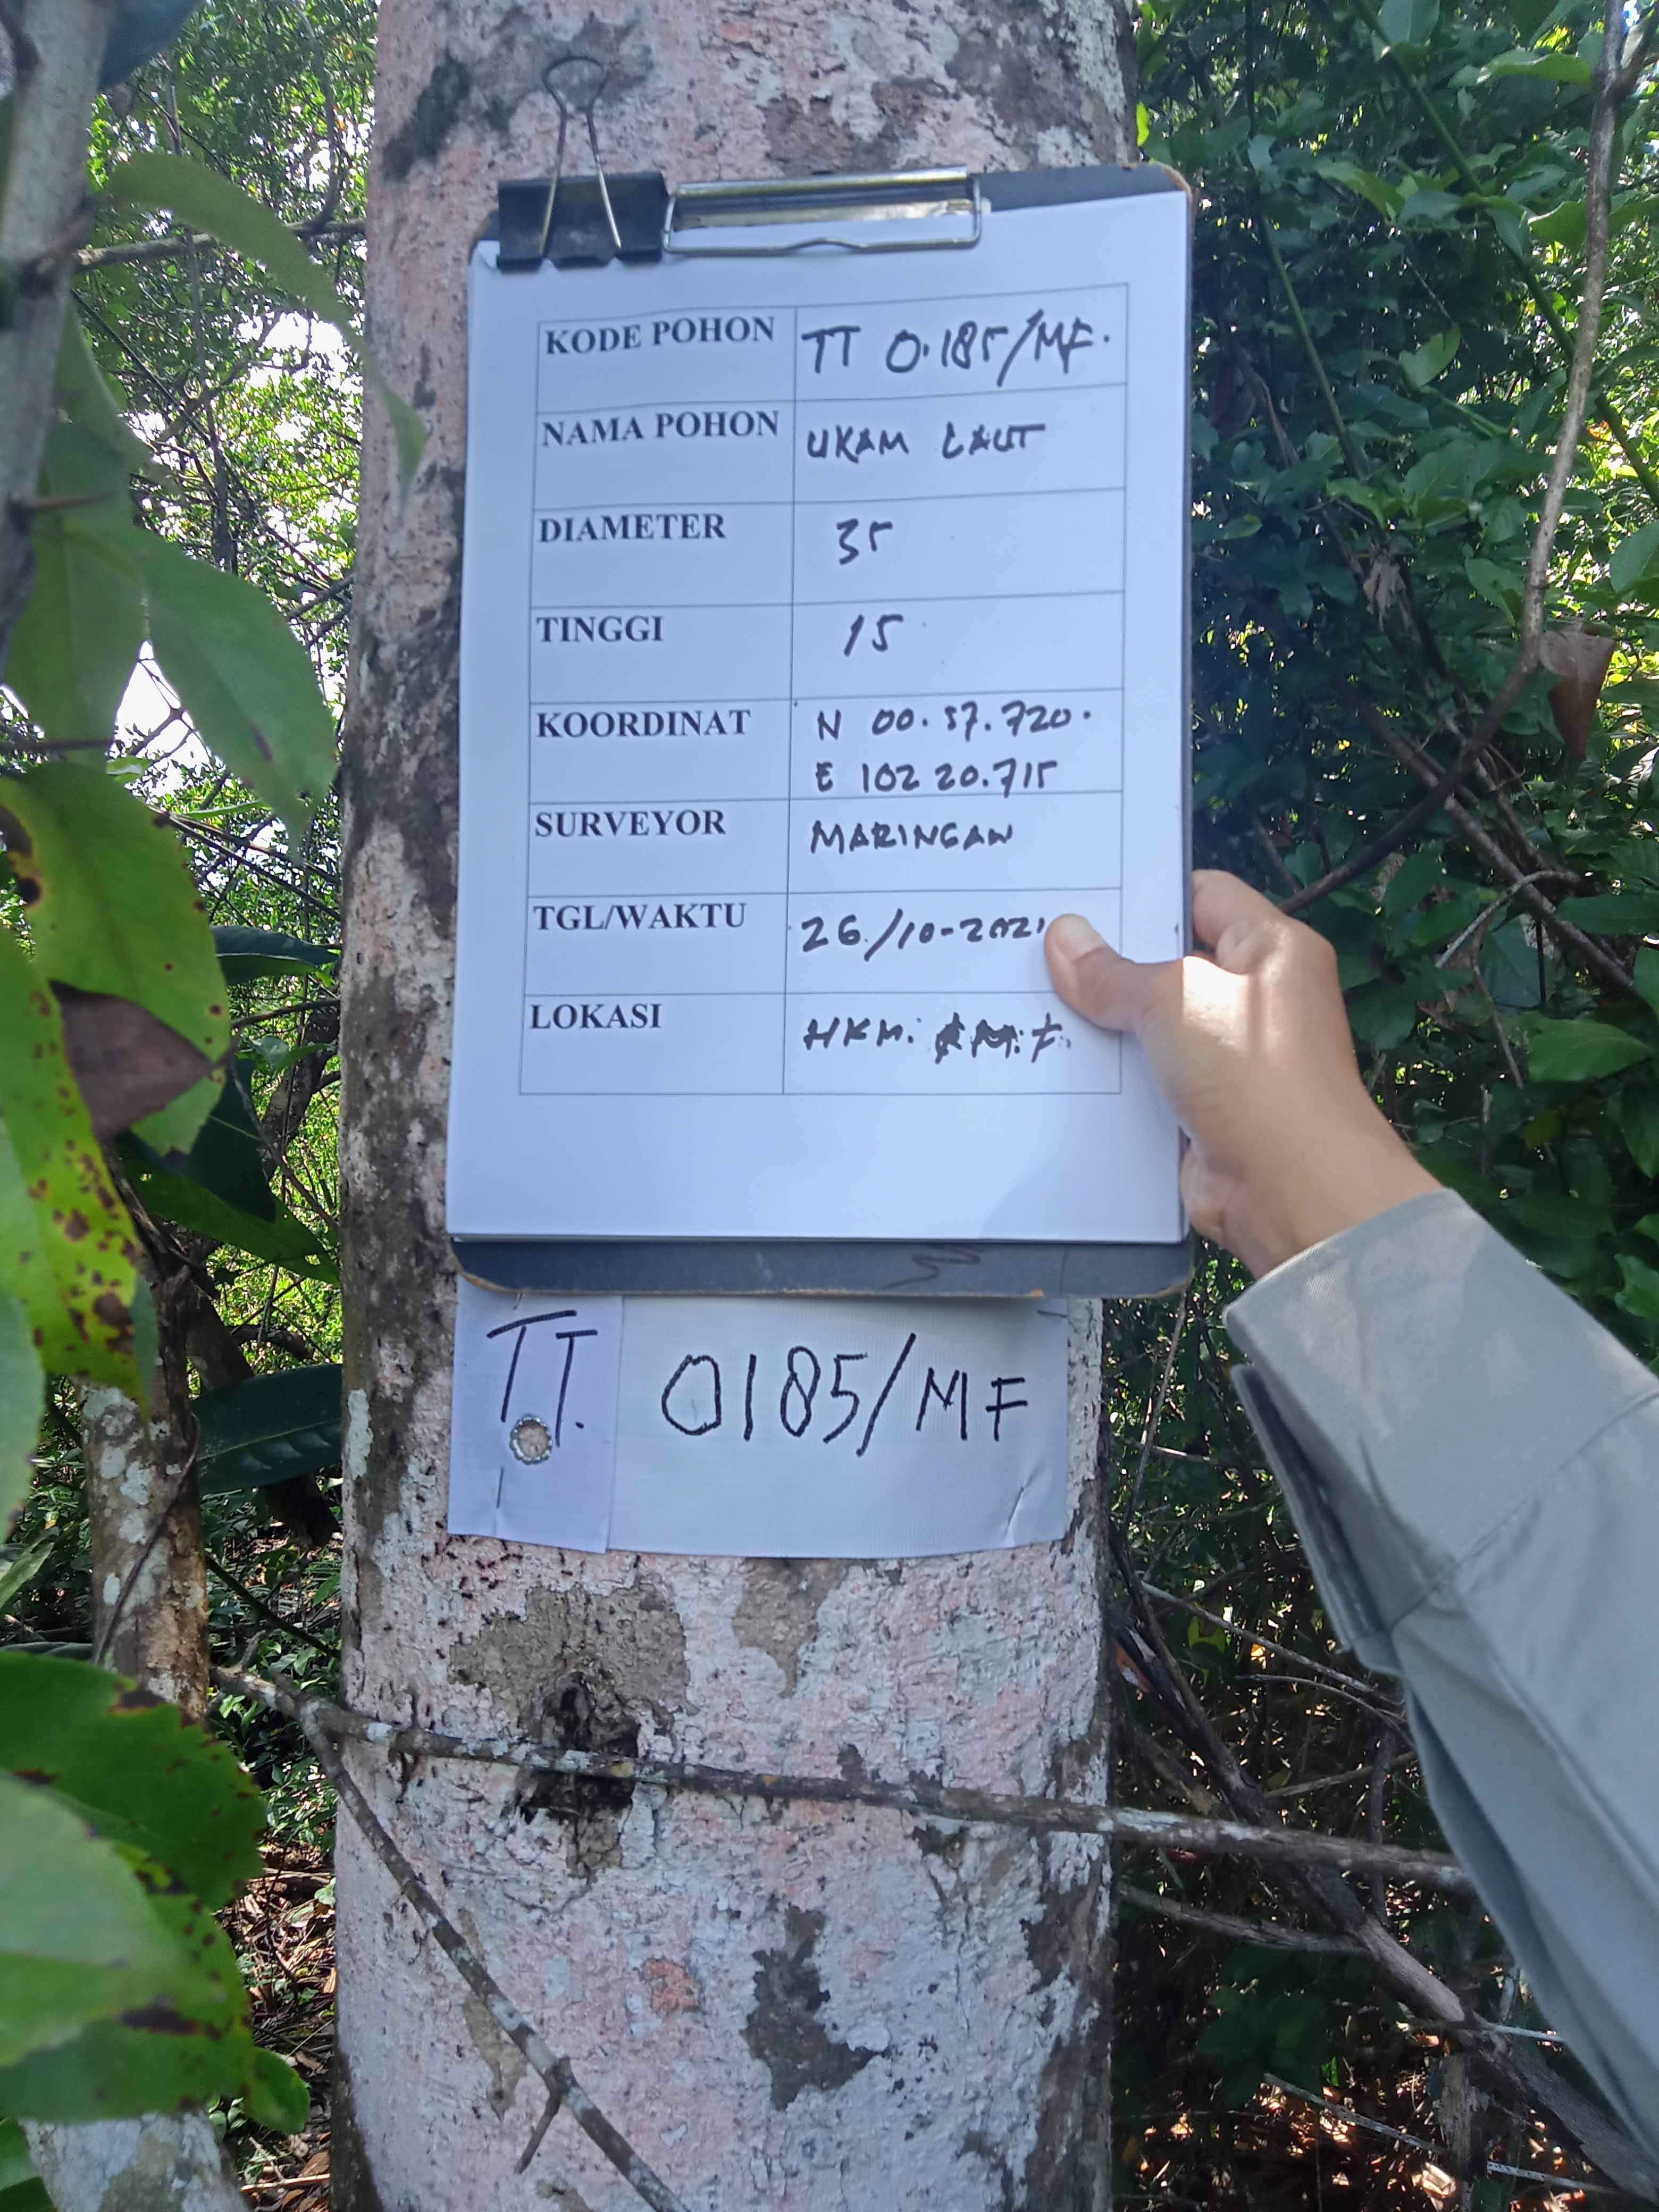 KODE POHON TT 0.185/MF.
NAMA POHON UKAM LAUT
DIAMETER 35
TINGGI 15
KOORDINAT N 00.57.720.
E 102 20.715
SURVEYOR MARINGAN
TGL/WAKTU 26/10-2021
LOKASI HKM.
TT. 0185/MF